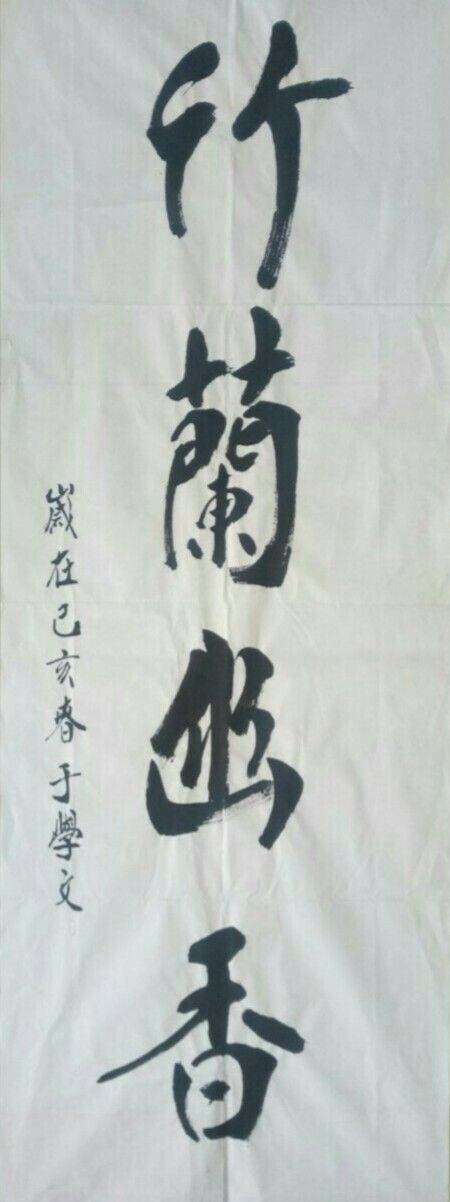 竹蘭幽香
歲在己亥春于學文